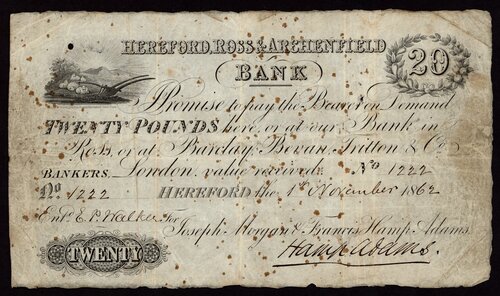 HEREFORD, ROSS & ARCHENFIELD
20
BANK
I Promise to pay the Bearer on Demand
TWENTY POUNDS here, or at our Bank in
Ross, or at Barclay Bevan, Tritton & Co
BANKERS, London, value received. No 1222
No 1222 HEREFORD the 1st November 1862
Entd E.P. Walker for Joseph Morgan & Francis Hamp Adams.
Hamp Adams.
TWENTY